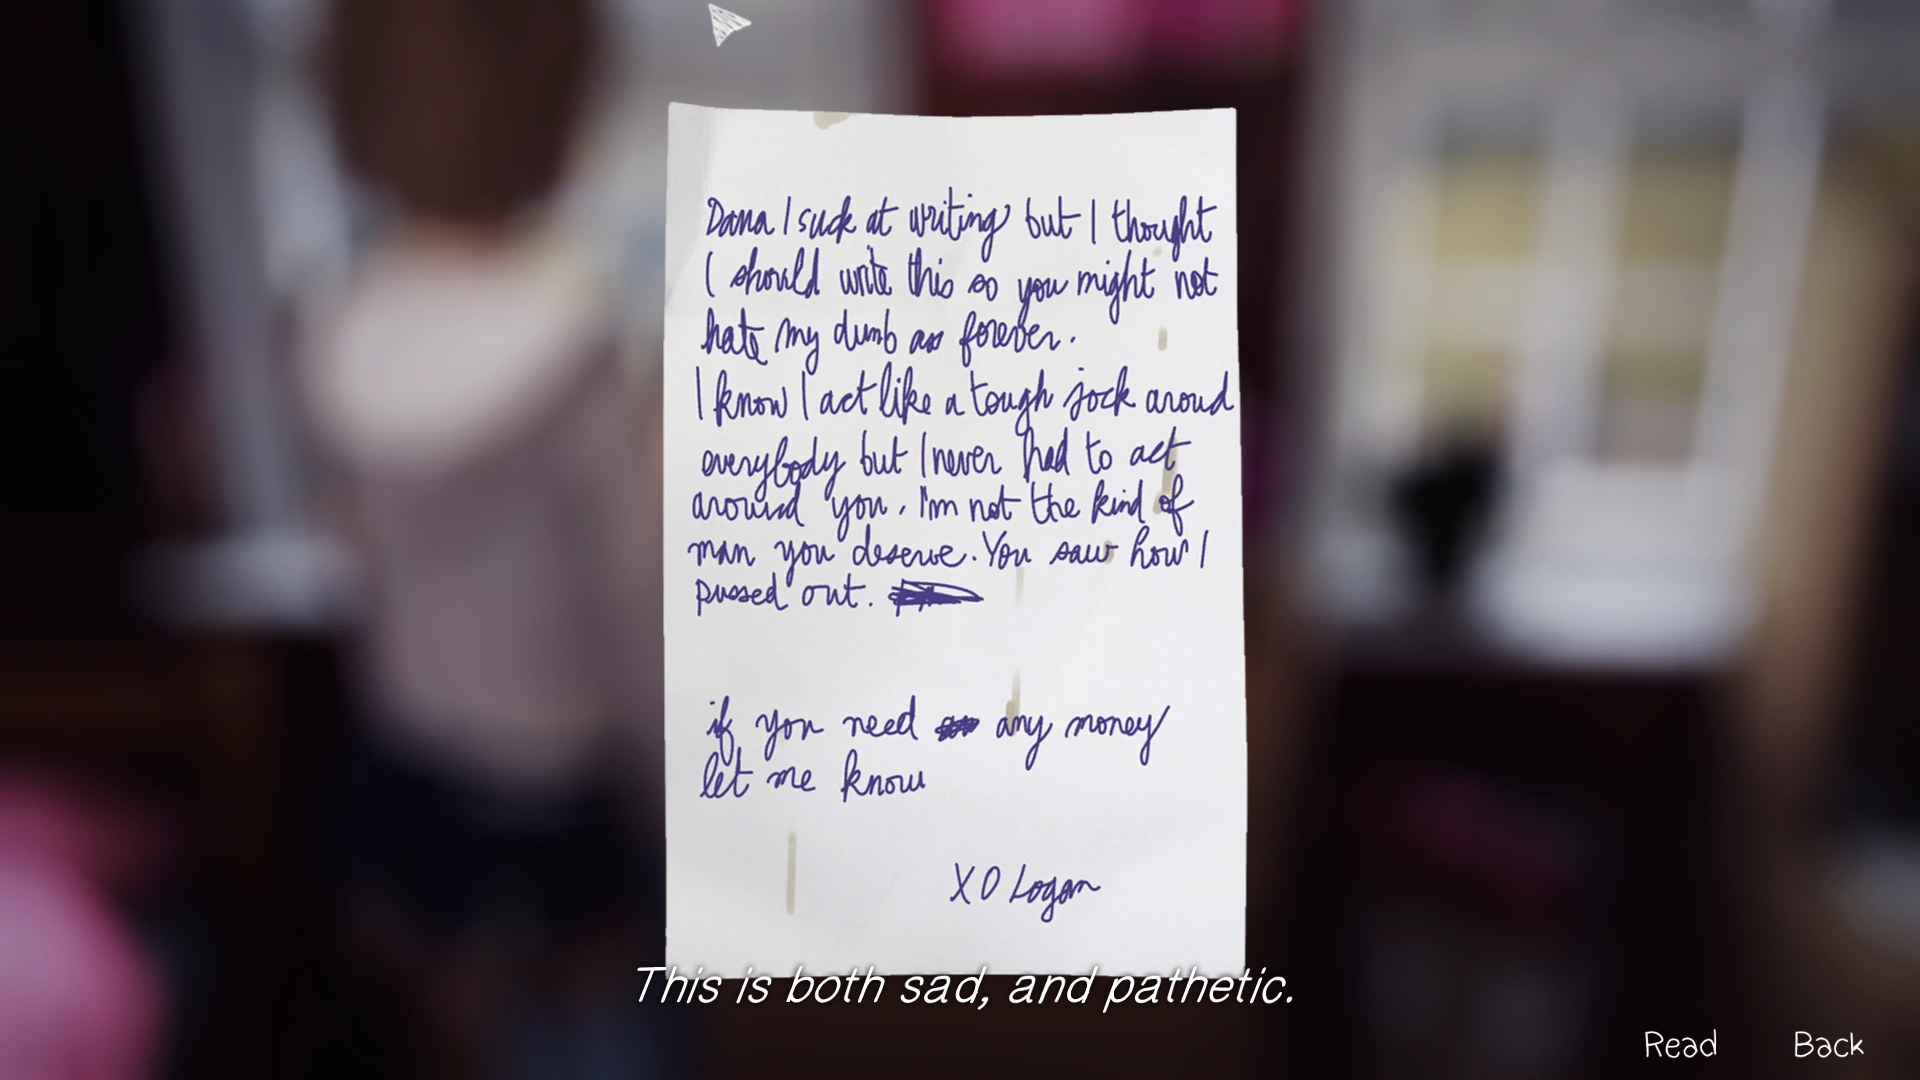 Dana I suck at writing but I thought
I should write this so you might not
hate my dumb ass forever.
I know I act like a tough jock aroud
everybody but I never had to act
around you. I'm not the kind of
man you deserve. You saw how I
pussed out.
if you need any money
let me know
XO Logan
This is both sad, and pathetic.
Read Back